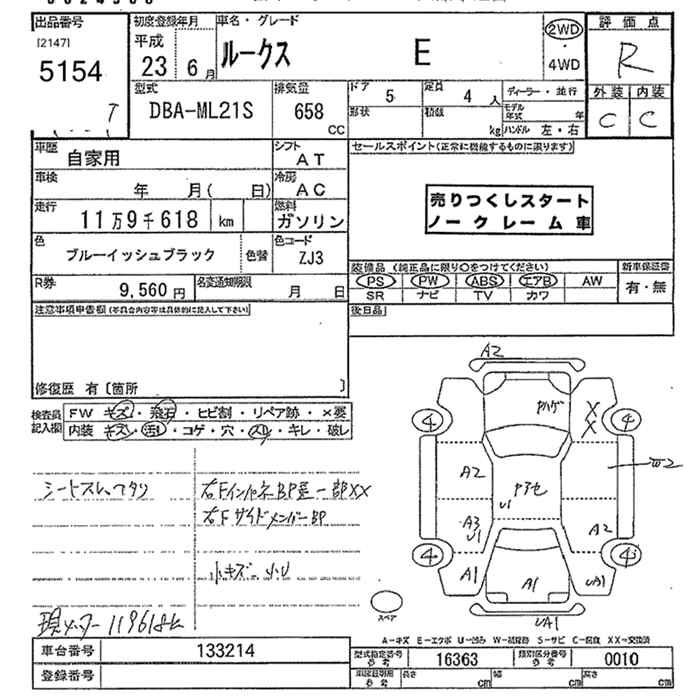 出品番号
[2147]
5154
初度登録年月
平成
23 6月
車名・グレード
ルークス E
2WD
・
4WD
評価点
R
型式
DBA-ML21S
排気量
658
CC
ドア 5
定員 4 人
形状
積載 kg
ディーラー・並行
モデル年式 年
ハンドル 左・右
外装 内装
C C
車歴
自家用
シフト
AT
セールスポイント(正常に機能するものに限ります)
車検
年 月( 日)
冷房
AC
走行
11万9千618 km
燃料
ガソリン
売りつくしスタート
ノークレーム車
色
ブルーイッシュブラック
色替
色コード
ZJ3
装備品(純正品に限り○をつけてください)
新車保証書
PS PW ABS エアB AW
有・無
SR ナビ TV カワ
R券
9,560円
名変通知期限
月 日
注意事項申告欄(不具合内容等は具体的に記入して下さい)
後日品
修復歴 有[箇所 ]
検査員記入欄
FW キズ・飛石・ヒビ割・リペア跡・×要
内装 キズ・汚レ・コゲ・穴・スレ・キレ・破レ
シートスレ、ヘタリ
右Fインパネ BP歪 一部XX
右Fサイドメンバー BP
小キズ 小U
現メーター 119618k
A2
4
4
4
4
A2
A3
U1
A1
U1
A1
A2
UA1
UA1
X
X
W2
スペア
A-キズ E-エクボ U-凹み W-補修跡 S-サビ C-腐食 XX-交換済
車台番号 133214
型式指定番号 参考 16363
類別区分番号 参考 0010
登録番号
車庫証明用 参考
長さ cm
幅 cm
高さ cm